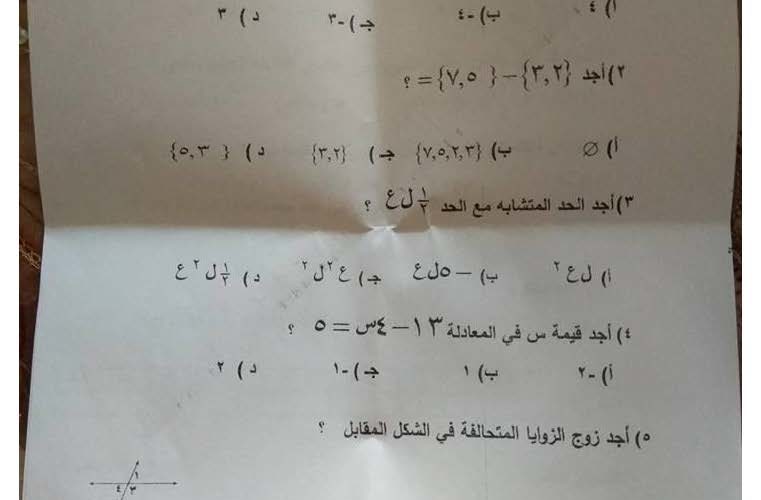 أ) ٤ ب) -٤ جـ) -٣ د) ٣
٢) أجد {٣,٢} – {٧,٥ } = ؟
أ) ∅ ب) {٧,٥,٢,٣} جـ) {٣,٢} د) { ٥,٣}
٣) أجد الحد المتشابه مع الحد ½ ل ع ؟
أ) ل ع² ب) – ٥ ل ع جـ) ع² ل² د) ½ ل² ع
٤) أجد قيمة س في المعادلة ١٣ – ٤س = ٥ ؟
أ) -٢ ب) ١ جـ) -١ د) ٢
٥) أجد زوج الزوايا المتحالفة في الشكل المقابل ؟
١
٤ ٣